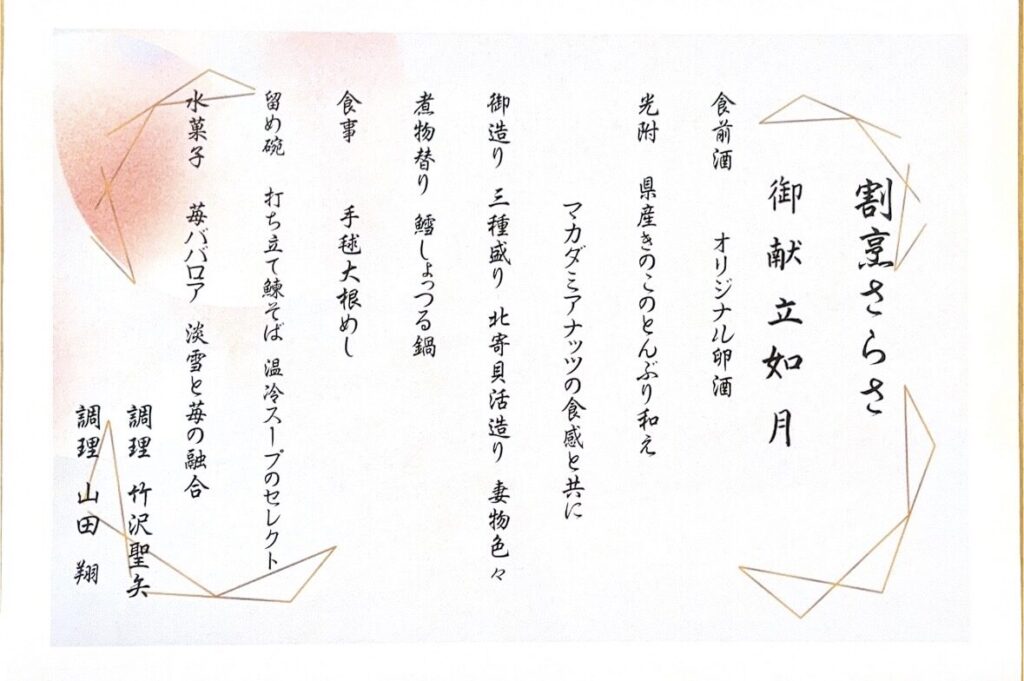 割烹さらさ
御献立如月
食前酒 オリジナル卵酒
光附 県産きのこのとんぶり和え
マカダミアナッツの食感と共に
御造り 三種盛り 北寄貝活造り 妻物色々
煮物替り 鱈しょっつる鍋
食事 手毬大根めし
留め碗 打ち立て鰊そば 温冷スープのセレクト
水菓子 苺ババロア 淡雪と苺の融合
調理 竹沢聖矢
調理 山田 翔